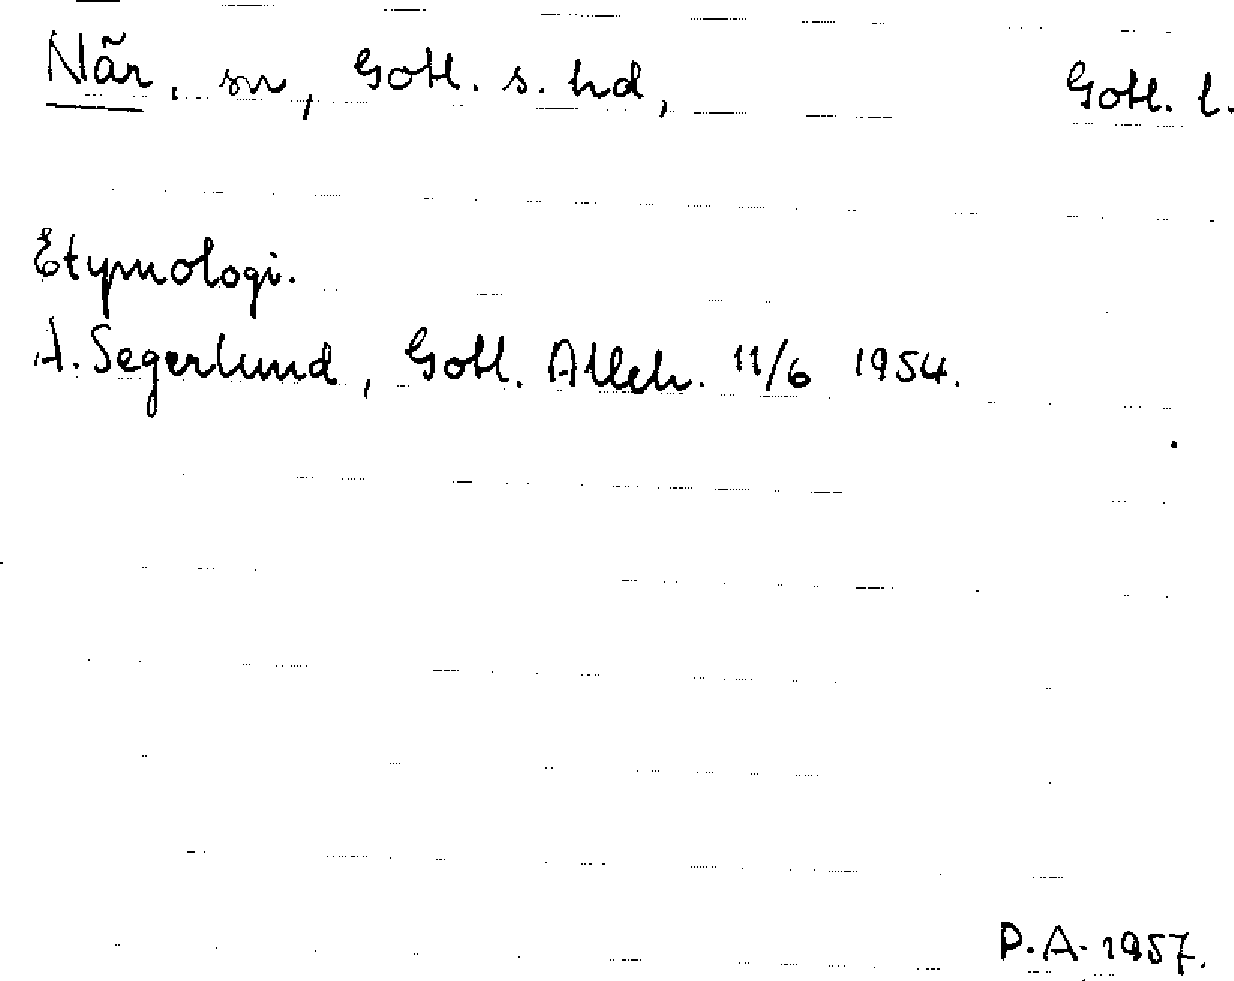 När, sn, Gotl. s. hd, Gotl. l.
Etymologi.
A. Segerlund, Gotl. Alleh. 11/6 1954.
P.A. 1957.